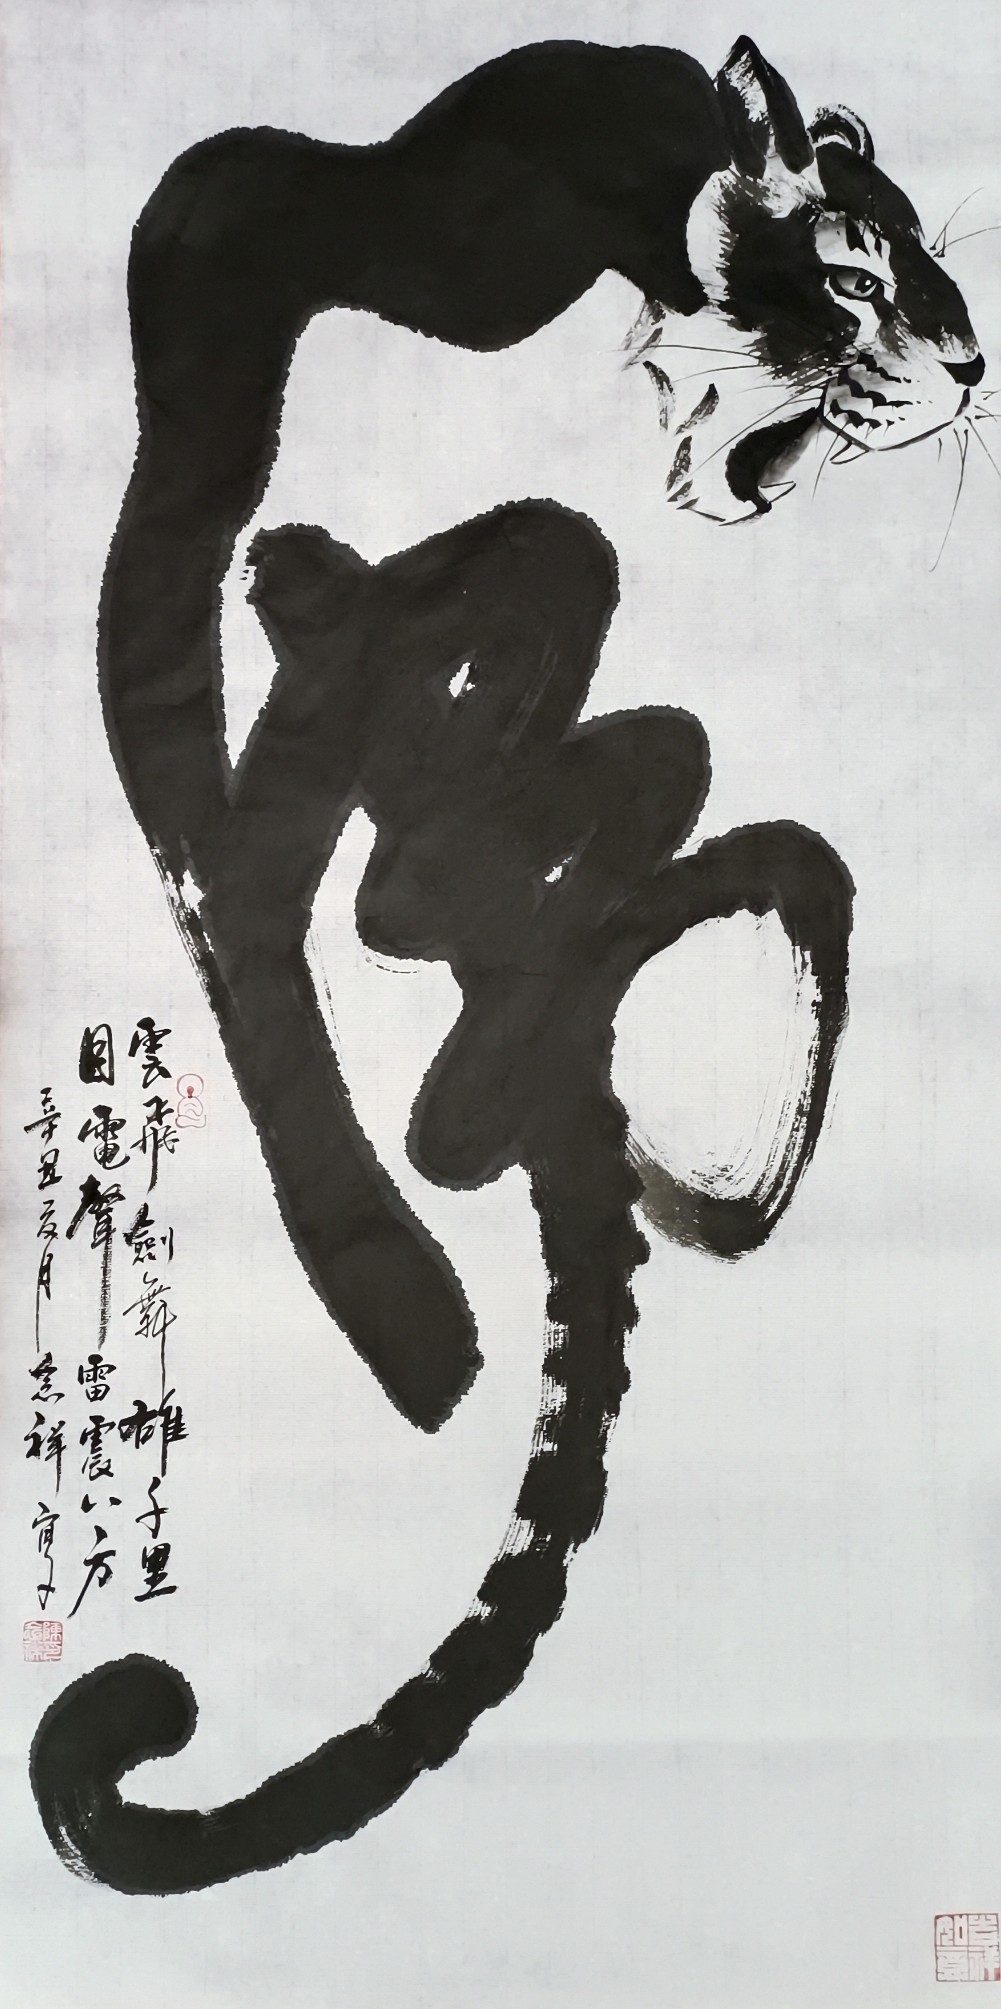 虎
雲飛劍舞雄千里
目電聲雷震八方
辛丑夏月 念祥寫
吉祥如意